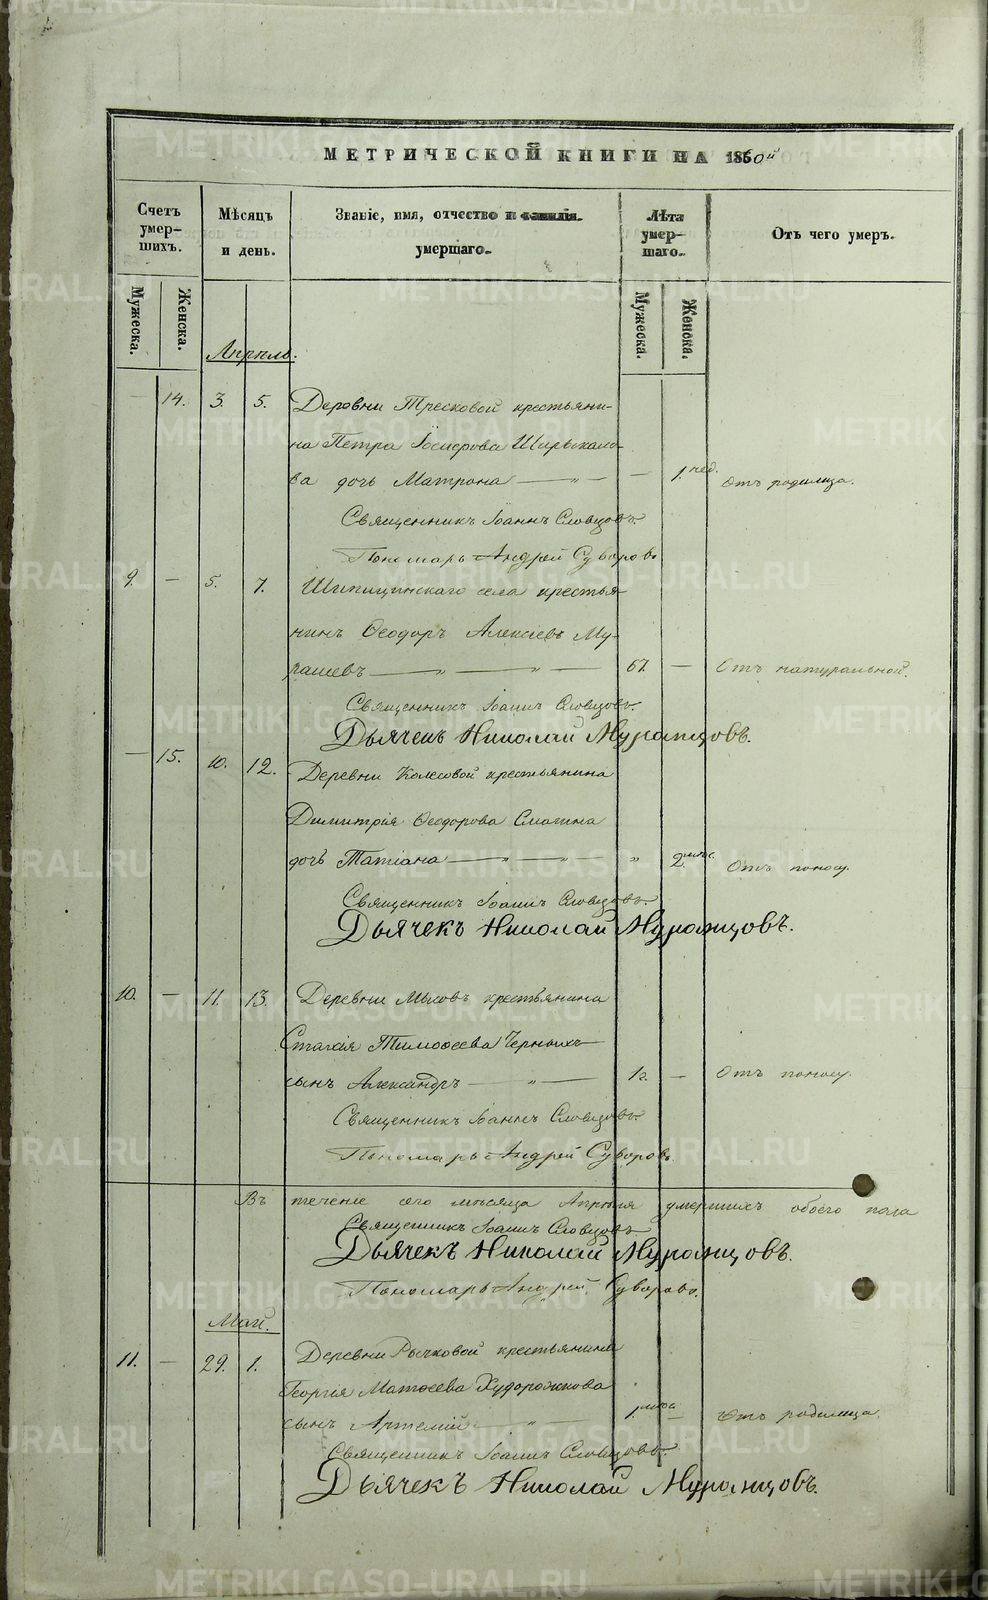 МЕТРИЧЕСКОЙ КНИГИ НА 1860й
Счетъ умер-шихъ.
Мѣсяцъ и день.
Званіе, имя, отчество и фамилія умершаго.
Лѣта умер-шаго.
Отъ чего умеръ.
Мужеска.
Женска.
Мужеска.
Женска.
Апрѣль.
14. 3. 5. Деревни Тресковой крестьяни-
на Петра
ва дочь Матрона — „ — — 1. нед. Отъ родимца.
Священникъ Іоаннъ Словцовъ.
Пономарь Андрей Суворовъ
9. — 5. 7. Шипицинскаго села крестья-
нинъ Ѳеодоръ Алексіевъ Му-
рашевъ — „ — „ — 67. — Отъ натуральной.
Священникъ Іоаннъ Словцовъ.
Дьячекъ Николай Муромцовъ.
— 15. 10. 12. Деревни Колесовой крестьянина
Димитрія Ѳеодорова Смагина
дочь Татіана — „ — „ — „ 2. мѣс. Отъ поносу.
Священникъ Іоаннъ Словцовъ.
Дьячекъ Николай Муромцовъ.
10. — 11. 13. Деревни крестьянина
Тимоѳеева Черныхъ
сынъ Александръ — „ — 1 г. — Отъ поносу.
Священникъ Іоаннъ Словцовъ.
Пономарь Андрей Суворовъ.
Въ теченіе сего мѣсяца Апрѣля умершихъ обоего пола
Священникъ Іоаннъ Словцовъ
Дьячекъ Николай Муромцовъ.
Пономарь Андрей Суворовъ.
Май.
11. — 29. 1. Деревни Рычковой крестьянина
Георгія Матѳеева Худорожкова
сынъ Артемій — „ — 1. мѣс. — Отъ родимца.
Священникъ Іоаннъ Словцовъ.
Дьячекъ Николай Муромцовъ.
METRIKI.GASO-URAL.RU